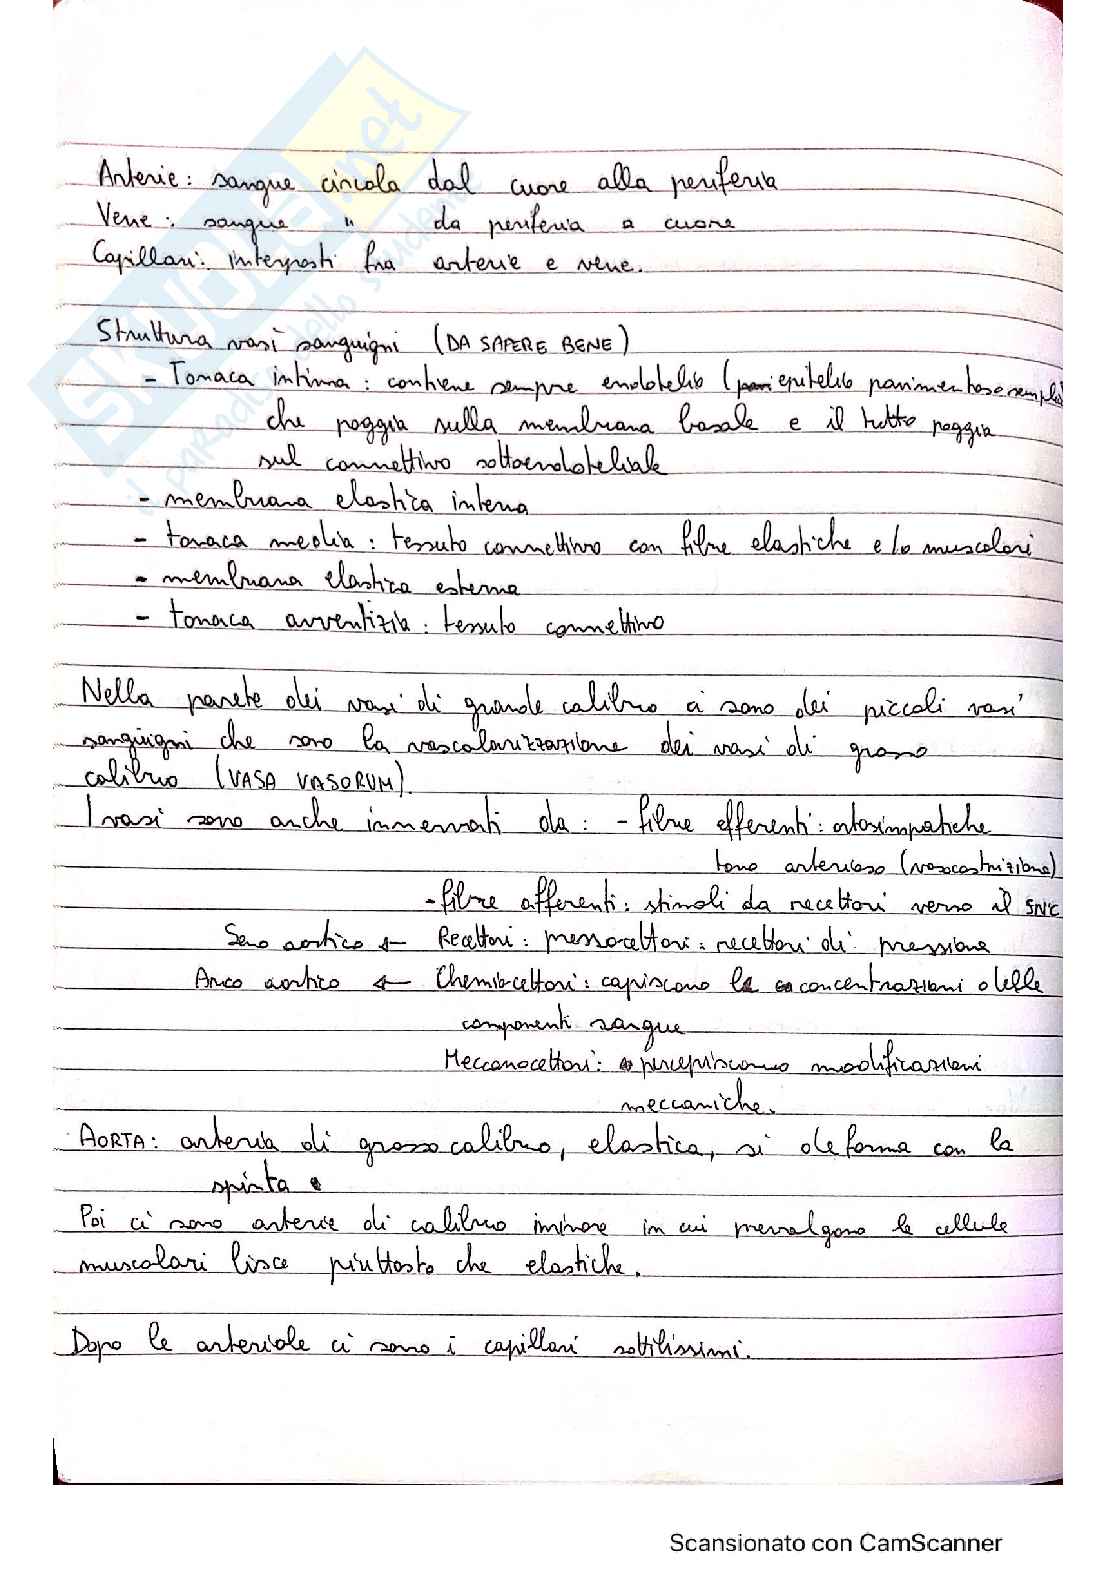 Arterie: sangue circola dal cuore alla periferia
Vene: sangue " da periferia a cuore
Capillari: interposti fra arterie e vene.
Struttura vasi sanguigni (DA SAPERE BENE)
- Tonaca intima: contiene sempre endotelio (epitelio pavimentoso semplice
che poggia sulla membrana basale e il tutto poggia
sul connettivo sottoendoteliale
- membrana elastica interna
- tonaca media: tessuto connettivo con fibre elastiche e/o muscolari
- membrana elastica esterna
- tonaca avventizia: tessuto connettivo
Nella parete dei vasi di grande calibro ci sono dei piccoli vasi
sanguigni che sono la vascolarizzazione dei vasi di grosso
calibro (VASA VASORUM).
I vasi sono anche innervati da: - fibre efferenti: ortosimpatiche
tono arterioso (vasocostrizione)
- fibre afferenti: stimoli da recettori verso il SNC
Seno aortico ← Recettori: pressocettori: recettori di pressione
Arco aortico ← Chemiocettori: capiscono le concentrazioni delle
componenti sangue
Meccanocettori: percepiscono modificazioni
meccaniche.
AORTA: arteria di grosso calibro, elastica, si deforma con la
spinta
Poi ci sono arterie di calibro minore in cui prevalgono le cellule
muscolari lisce piuttosto che elastiche.
Dopo le arteriole ci sono i capillari sottilissimi.
SKUOLA.net
il paradiso dello studente
Scansionato con CamScanner